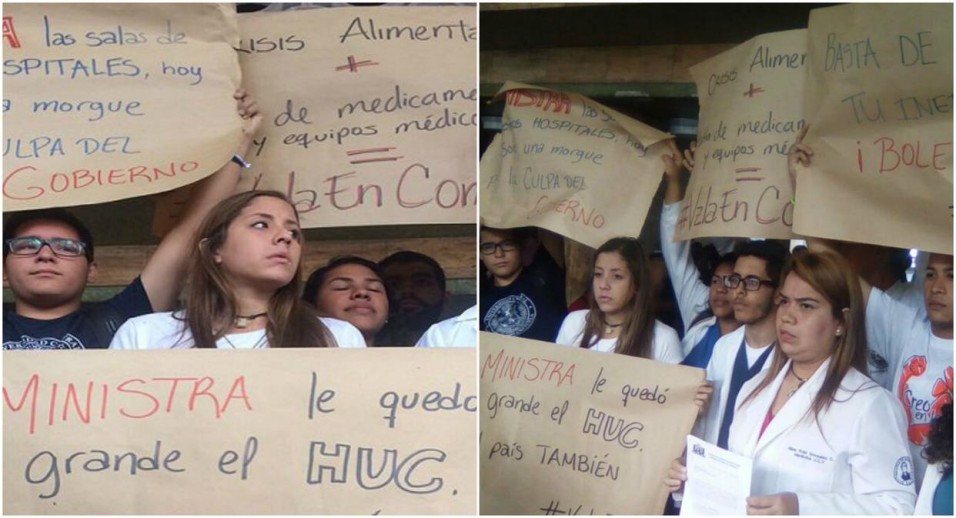 las salas de
SPITALES, hoy
morgue
ULPA DEL
GOBIERNO
ISIS Alimenta
+
de medicame
y equipos médico
=
VzlaEn Con
MINISTRA le quedó
grande el HUC.
MINISTRA las
HOSPITALES, hoy
una morgue
CULPA DEL
Crisis Alimen
+
de medicam
y equipos mé
=
#VzlaEn Co
BASTA DE
TU INE
¡BOLE
MINISTRA le quedó
grande el HUC.
país TAMBIÉN